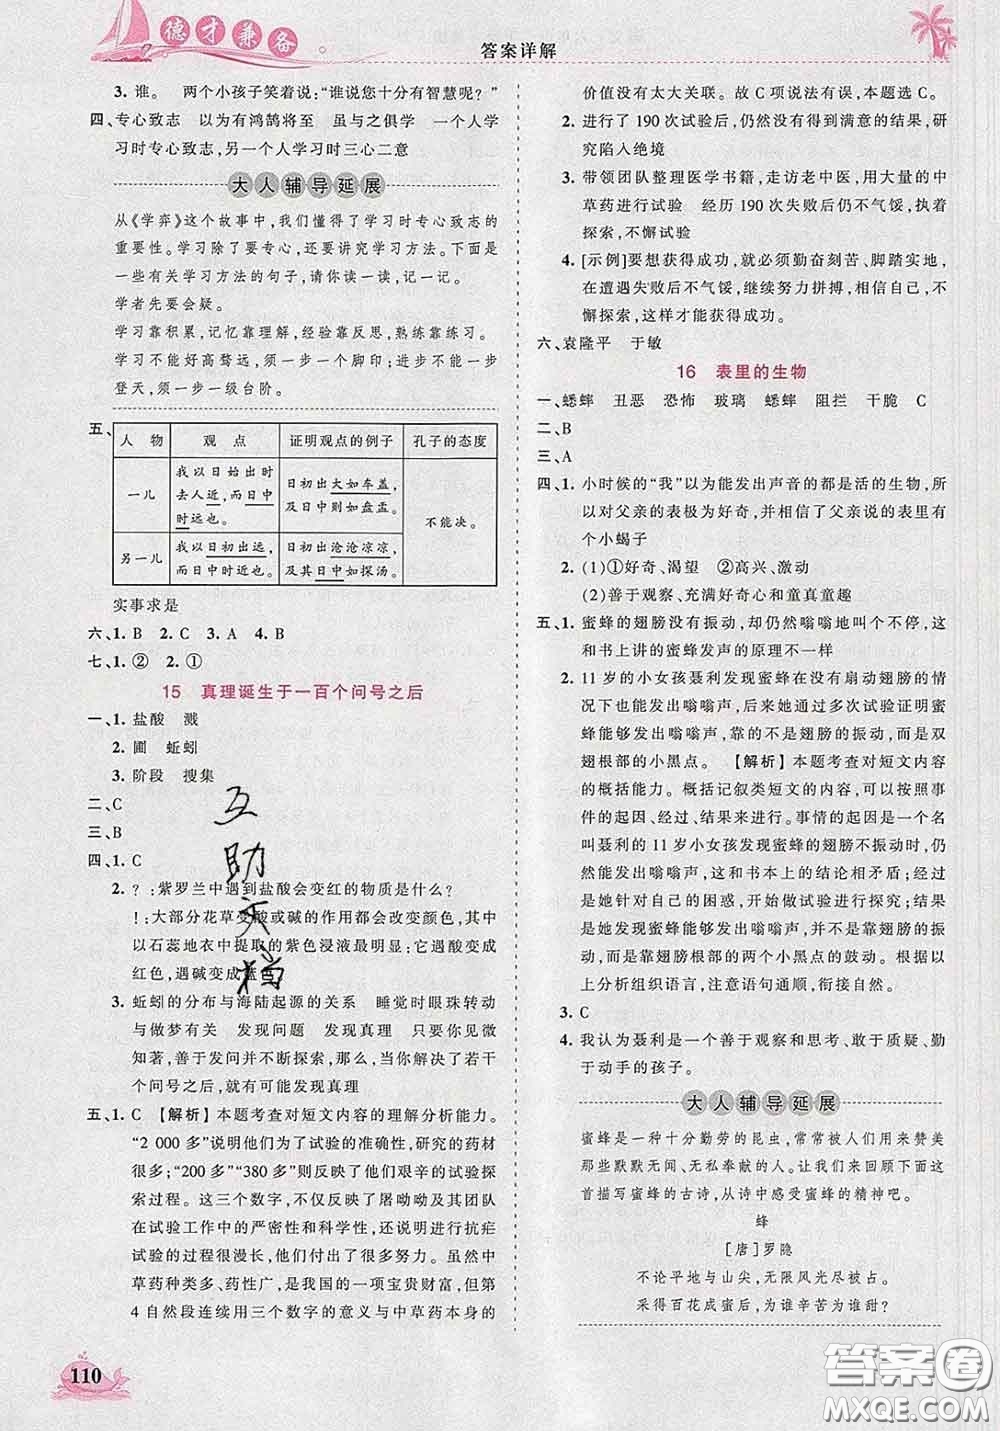 德才兼备
答案详解
3. 谁。 两个小孩子笑着说:“谁说您十分有智慧呢?”
四、专心致志 以为有鸿鹄将至 虽与之俱学 一个人学
习时专心致志,另一个人学习时三心二意
大人辅导延展
从《学弈》这个故事中,我们懂得了学习时专心致志的
重要性。学习除了要专心,还要讲究学习方法。下面是
一些有关学习方法的句子,请你读一读,记一记。
学者先要会疑。
学习靠积累,记忆靠理解,经验靠反思,熟练靠练习。
学习不能好高骛远,须一步一个脚印;进步不能一步
登天,须一步一级台阶。
五、
人 物 观 点 证明观点的例子 孔子的态度
一儿 我以日始出时去人近,而日中时远也。 日初出大如车盖,及日中则如盘盂。 不能决。
另一儿 我以日初出远,而日中时近也。 日初出沧沧凉凉,及其日中如探汤。
实事求是
六、1. B 2. C 3. A 4. B
七、1. ② 2. ①
15 真理诞生于一百个问号之后
一、1. 盐酸 溅
2. 圃 蚯蚓
3. 阶段 搜集
二、C
三、B
四、1. C
2. ?:紫罗兰中遇到盐酸会变红的物质是什么?
!:大部分花草受酸或碱的作用都会改变颜色,其中
以石蕊地衣中提取的紫色浸液最明显;它遇酸变成
红色,遇碱变成蓝色
3. 蚯蚓的分布与海陆起源的关系 睡觉时眼珠转动
与做梦有关 发现问题 发现真理 只要你见微
知著,善于发问并不断探索,那么,当你解决了若干
个问号之后,就有可能发现真理
五、1. C 【解析】本题考查对短文内容的理解分析能力。
“2 000 多”说明他们为了试验的准确性,研究的药材
很多;“200 多”“380 多”则反映了他们艰辛的试验探
索过程。这三个数字,不仅反映了屠呦呦及其团队
在试验工作中的严密性和科学性,还说明进行抗疟
试验的过程很漫长,他们付出了很多努力。虽然中
草药种类多、药性广,是我国的一项宝贵财富,但第
4 自然段连续用三个数字的意义与中草药本身的
价值没有太大关联。故 C 项说法有误,本题选 C。
2. 进行了 190 次试验后,仍然没有得到满意的结果,研
究陷入绝境
3. 带领团队整理医学书籍,走访老中医,用大量的中
草药进行试验 经历 190 次失败后仍不气馁,执着
探索,不懈试验
4. [示例]要想获得成功,就必须勤奋刻苦、脚踏实地,
在遭遇失败后不气馁,继续努力拼搏,持之以恒,
不懈探索,这样才能获得成功。
六、袁隆平 于敏
16 表里的生物
一、蟋蟀 丑恶 恐怖 玻璃 蟋蟀 阻拦 干脆 C
二、B
三、A
四、1. 小时候的“我”以为能发出声音的都是活的生物,所
以对父亲的表极为好奇,并且相信了父亲说的表里有
个小蝎子
2. (1)①好奇、渴望 ②高兴、激动
(2)善于观察、充满好奇心和童真童趣
五、1. 蜜蜂的翅膀没有振动,却仍然嗡嗡地叫个不停,这
和书上讲的蜜蜂发声的原理不一样
2. 11 岁的小女孩聂利发现蜜蜂在没有扇动翅膀的情
况下也能发出嗡嗡声,后来她通过多次试验证明蜜
蜂能够发出嗡嗡声,靠的不是翅膀的振动,而是双
翅根部的小黑点。 【解析】本题考查对短文内容
的概括能力。概括记叙类短文的内容,可以按照事
件的起因、经过、结果来进行。事情的起因是一个名
叫聂利的 11 岁小女孩发现蜜蜂的翅膀不振动,但
仍然能发声,这和书本上的结论有矛盾;事情的经过
是她针对自己的困惑,开始做试验进行探究;结果是
她发现蜜蜂能够发出嗡嗡声,并不是靠翅膀的振
动,而是靠翅膀根部的两个小黑点的鼓动。根据以
上分析组织语言,注意语句通顺,衔接自然。
3. C
4. 我认为聂利是一个善于观察和思考、敢于质疑、勤
于动手的孩子。
大人辅导延展
蜜蜂是一种十分勤劳的昆虫,常常被人们用来赞美
那些默默无闻、无私奉献的人。让我们来积累一下这
首描写蜜蜂的古诗,从诗中感受蜜蜂的精神吧。
蜂
[唐]罗隐
不论平地与山尖,无限风光尽被占。
采得百花成蜜后,为谁辛苦为谁甜?
互助文档
110
答案圈
MXQE.COM